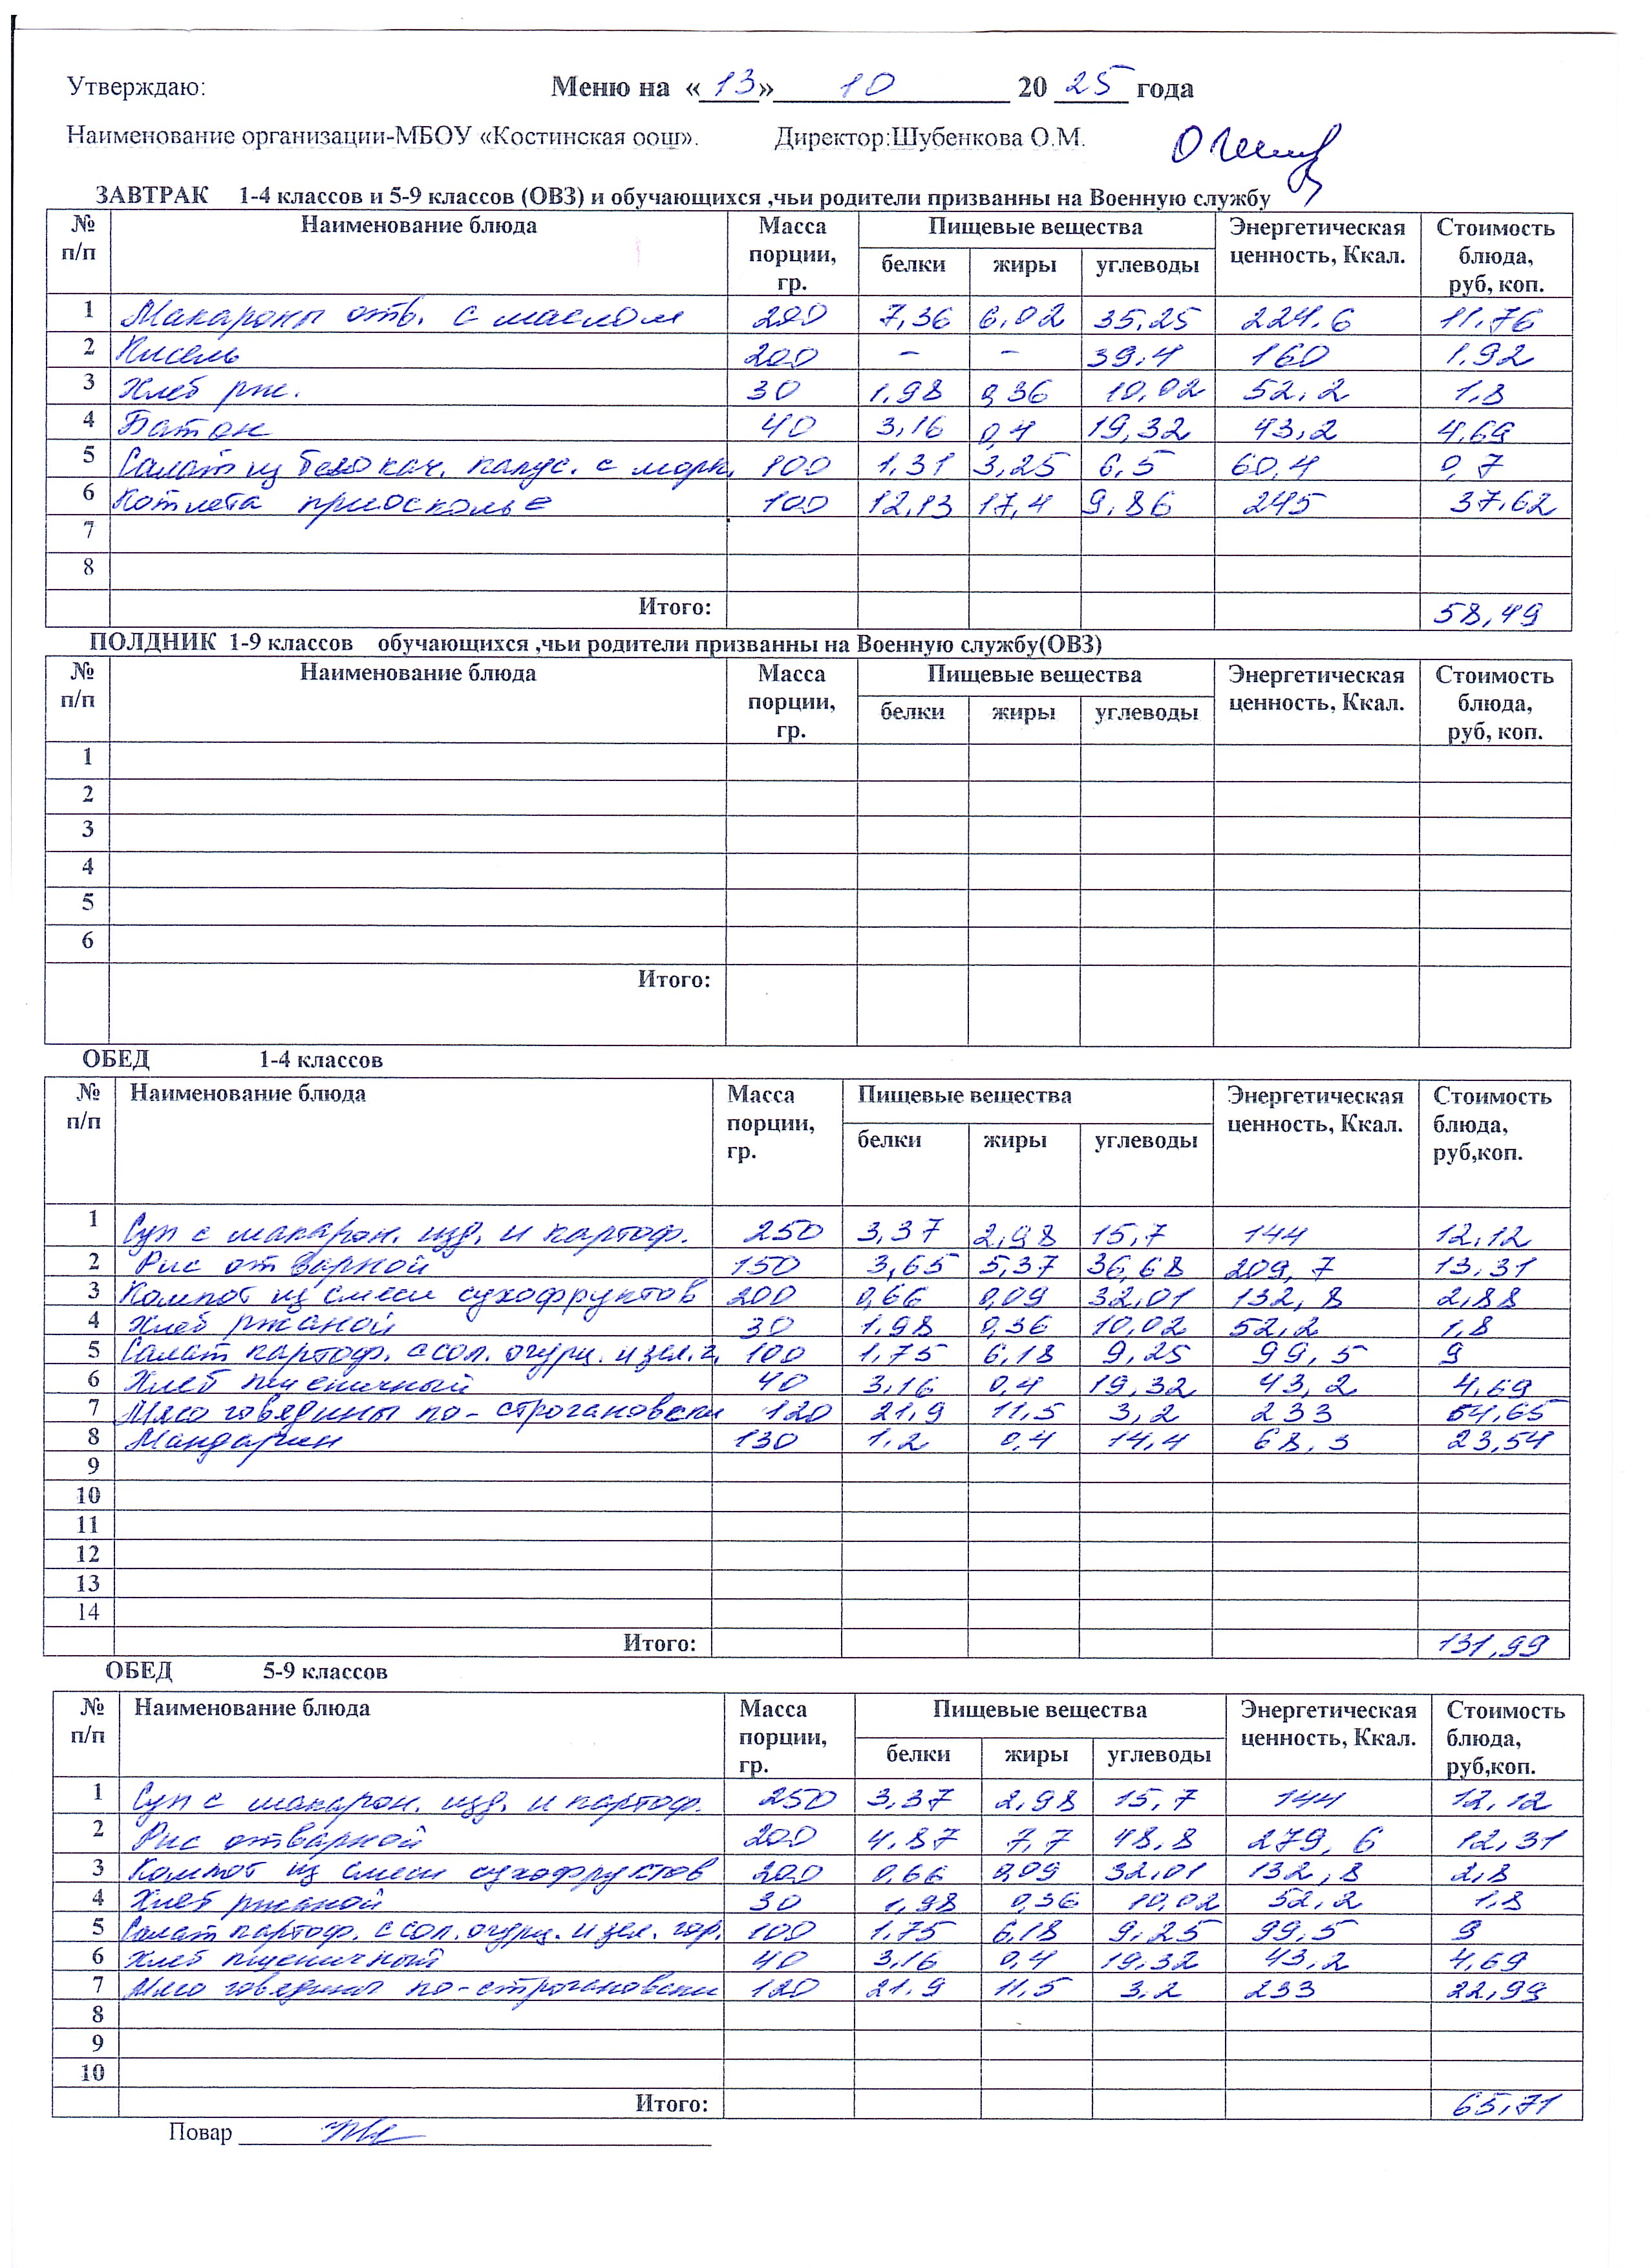 Утверждаю: Меню на «13» 10 20 25 года
Наименование организации-МБОУ «Костинская оош». Директор:Шубенкова О.М.
ЗАВТРАК 1-4 классов и 5-9 классов (ОВЗ) и обучающихся ,чьи родители призванны на Военную службу
№ п/п Наименование блюда Масса порции, гр. Пищевые вещества Энергетическая ценность, Ккал. Стоимость блюда, руб, коп.
белки жиры углеводы
1 Макароны отв. с маслом 200 7,36 6,02 35,25 224,6 11,76
2 Кисель 200 - - 39,4 160 1,92
3 Хлеб рж. 30 1,98 0,36 10,02 52,2 1,8
4 Батон 40 3,16 0,4 19,32 43,2 4,69
5 Салат из белокач. капус. с морк. 100 1,31 3,25 6,5 60,4 0,7
6 Котлета приосколье 100 12,13 17,4 9,86 245 37,62
7
8
Итого: 58,49
ПОЛДНИК 1-9 классов обучающихся ,чьи родители призванны на Военную службу(ОВЗ)
№ п/п Наименование блюда Масса порции, гр. Пищевые вещества Энергетическая ценность, Ккал. Стоимость блюда, руб, коп.
белки жиры углеводы
1
2
3
4
5
6
Итого:
ОБЕД 1-4 классов
№ п/п Наименование блюда Масса порции, гр. Пищевые вещества Энергетическая ценность, Ккал. Стоимость блюда, руб,коп.
белки жиры углеводы
1 Суп с макарон. изд. и картоф. 250 3,37 2,98 15,7 144 12,12
2 Рис отварной 150 3,65 5,37 36,68 209,7 13,31
3 Компот из смеси сухофруктов 200 0,66 0,09 32,01 132,8 2,88
4 Хлеб ржаной 30 1,98 0,36 10,02 52,2 1,8
5 Салат картоф. с сол. огурц. и зел. г. 100 1,75 6,18 9,25 99,5 9
6 Хлеб пшеничный 40 3,16 0,4 19,32 43,2 4,69
7 Мясо говядины по-строгановски 120 21,9 11,5 3,2 233 64,65
8 Мандарин 130 1,2 0,4 14,4 68,3 23,54
9
10
11
12
13
14
Итого: 131,99
ОБЕД 5-9 классов
№ п/п Наименование блюда Масса порции, гр. Пищевые вещества Энергетическая ценность, Ккал. Стоимость блюда, руб,коп.
белки жиры углеводы
1 Суп с макарон. изд. и картоф. 250 3,37 2,98 15,7 144 12,12
2 Рис отварной 200 4,87 7,7 48,8 279,6 12,31
3 Компот из смеси сухофруктов 200 0,66 0,09 32,01 132,8 2,8
4 Хлеб ржаной 30 1,98 0,36 10,02 52,2 1,8
5 Салат картоф. с сол. огурц. и зел. гор. 100 1,75 6,18 9,25 99,5 9
6 Хлеб пшеничный 40 3,16 0,4 19,32 43,2 4,69
7 Мясо говядины по-строгановски 120 21,9 11,5 3,2 233 22,99
8
9
10
Итого: 65,71
Повар